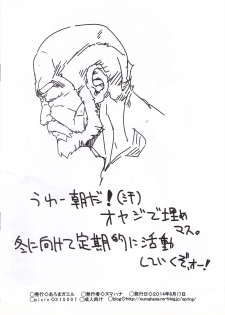 うわー朝だ!(汗)
オヤジで埋め
マス。
冬に向けて定期的に活動
していくぞ、オー!
○発行○あろまガエル ○発行者○ズマハナ ○発行日○2014年8月17日
○pixiv○315007 ○成人向け ○blog○http://numahana.noro-blog.jp/spring/